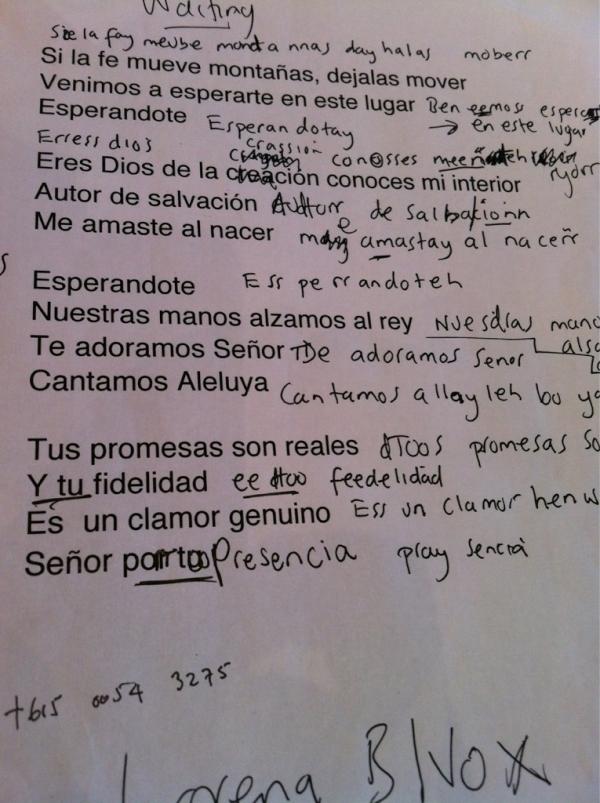 Waiting
la fay meube montannas day halas moberr
Si la fe mueve montañas, dejalas mover
Venimos a esperarte en este lugar Ben eemoss esperar
Esperandote Esperandotay → en este lugar
Erress dios crassion conosses
Eres Dios de la creación conoces mi interior
Autor de salvación de salbacionn
Me amaste al nacer amastay al nacerr
Esperandote Ess perrandoteh
Nuestras manos alzamos al rey Nuesdras mano
Te adoramos Señor De adoramos senor
Cantamos Aleluya Cantamos allay leh bo ya
Tus promesas son reales dtoos promesas so
Y tu fidelidad ee dtoo feedelidad
Es un clamor genuino Ess un clamor henu
Señor por tu Presencia pray sencia
3275
Lorena B/Vox